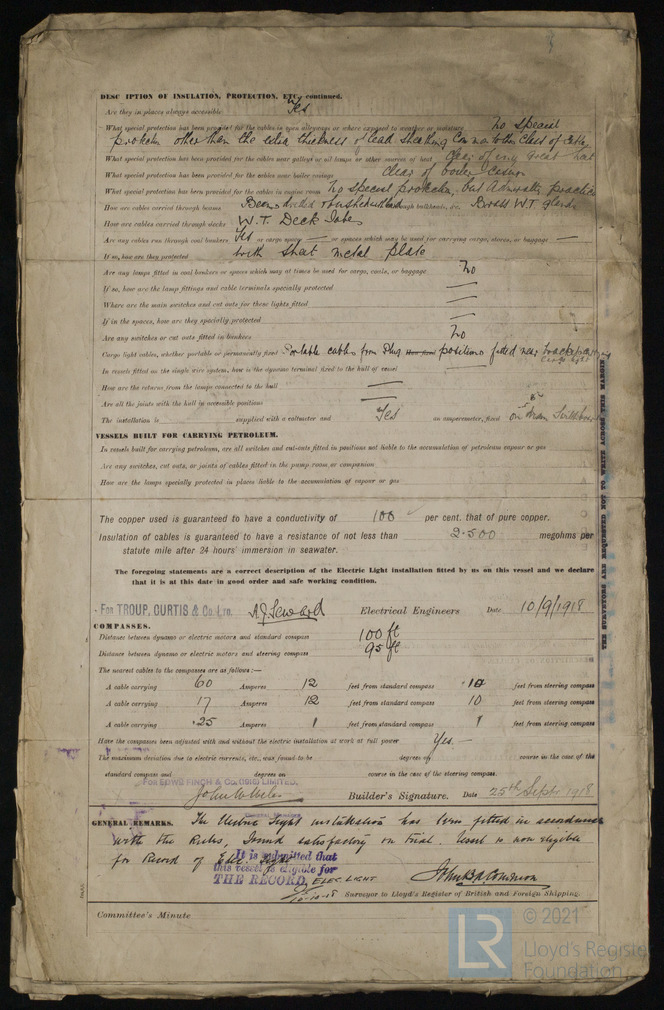 DESC IPTION OF INSULATION, PROTECTION, ETC. continued.
Are they in places always accessible Yes
What special protection has been provided for the cables in open alleyways or where exposed to weather or moisture No special
protection other than the extra thickness of lead sheathing common to this class of cable
What special protection has been provided for the cables near galleys or oil lamps or other sources of heat clear of any great heat
What special protection has been provided for the cables near boiler casings clear of boiler casing
What special protection has been provided for the cables in engine room No special protection, but Admiralty practice
How are cables carried through beams through bulkheads, &c. Brass W.T. glands
How are cables carried through decks W.T. Deck Tubes
Are any cables run through coal bunkers Yes or cargo spaces — or spaces which may be used for carrying cargo, stores, or baggage —
If so, how are they protected with sheet metal plate
Are any lamps fitted in coal bunkers or spaces which may at times be used for cargo, coals, or baggage No
If so, how are the lamp fittings and cable terminals specially protected —
Where are the main switches and cut outs for these lights fitted —
If in the spaces, how are they specially protected —
Are any switches or cut outs fitted in bunkers No
Cargo light cables, whether portable or permanently fixed Portable cables from Plug positions fitted near
cargo light
In vessels fitted on the single wire system, how is the dynamo terminal fixed to the hull of vessel —
How are the returns from the lamps connected to the hull —
Are all the joints with the hull in accessible positions —
The installation is supplied with a voltmeter and Yes an amperemeter, fixed on Main Switchboard
VESSELS BUILT FOR CARRYING PETROLEUM.
In vessels built for carrying petroleum, are all switches and cut-outs fitted in positions not liable to the accumulation of petroleum vapour or gas
Are any switches, cut outs, or joints of cables fitted in the pump room or companion
How are the lamps specially protected in places liable to the accumulation of vapour or gas
THE SURVEYORS ARE REQUESTED NOT TO WRITE ACROSS THIS MARGIN
The copper used is guaranteed to have a conductivity of 100 per cent. that of pure copper.
Insulation of cables is guaranteed to have a resistance of not less than 2.500 megohms per
statute mile after 24 hours' immersion in seawater.
The foregoing statements are a correct description of the Electric Light installation fitted by us on this vessel and we declare
that it is at this date in good order and safe working condition.
For TROUP, CURTIS & Co. LTD. A.J. Seward Electrical Engineers Date 10/9/1918
COMPASSES.
Distance between dynamo or electric motors and standard compass 100 ft
Distance between dynamo or electric motors and steering compass 95 ft
The nearest cables to the compasses are as follows:—
A cable carrying 60 Amperes 12 feet from standard compass 10 feet from steering compass
A cable carrying 17 Amperes 12 feet from standard compass 10 feet from steering compass
A cable carrying .25 Amperes 1 feet from standard compass 1 feet from steering compass
Have the compasses been adjusted with and without the electric installation at work at full power Yes —
The maximum deviation due to electric currents, etc., was found to be degrees on course in the case of the
standard compass and degrees on course in the case of the steering compass.
FOR EDWD FINCH & Co. (1916) LIMITED,
Builder's Signature. Date 25th Sept 1918
GENERAL REMARKS. The Electric Light installation has been fitted in accordance
with the Rules, found satisfactory on trial. Vessel is now eligible
for Record of Elec. Light
It is submitted that
this vessel is eligible for
THE RECORD. ELEC. LIGHT
10-10-18
Surveyor to Lloyd's Register of British and Foreign Shipping.
Committee's Minute
LR
© 2021
Lloyd's Register
Foundation